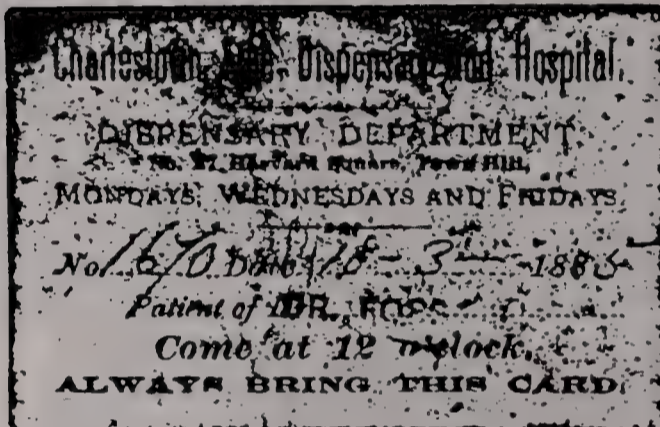 Charlestown Free Dispensary and Hospital.
DISPENSARY DEPARTMENT,
No. 27 Harvard Square, Town Hill,
MONDAYS, WEDNESDAYS AND FRIDAYS
No. Date 188
Patient of DR.
Come at 12 o'clock.
ALWAYS BRING THIS CARD.